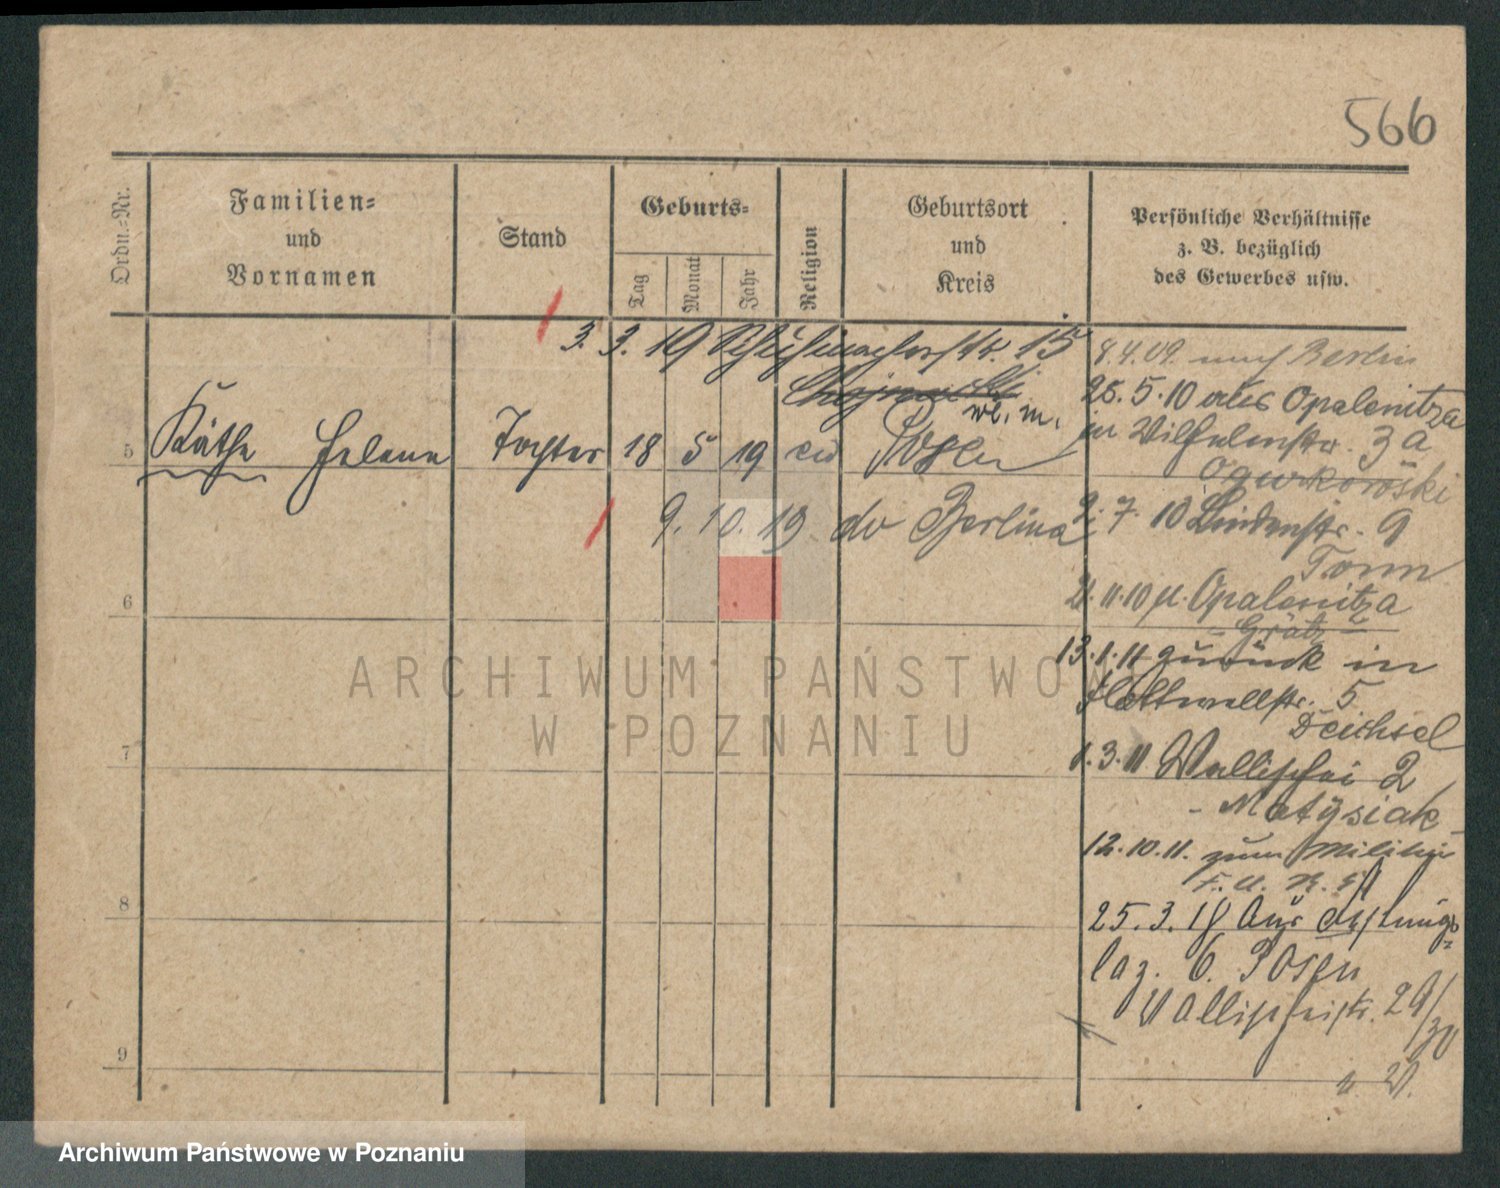 566
Ordn.-Nr.
Familien-
und
Vornamen
Stand
Geburts-
Tag
Monat
Jahr
Religion
Geburtsort
und
Kreis
Persönliche Verhältnisse
z. B. bezüglich
des Gewerbes usw.
3. 3. 19 15
wl. m.
5 Käthe Helene Tochter 18 5 19 ev Posen
9. 10. 19 do Berlina
6
7
8
9
8.4.09. nach Berlin
25.5.10 aus Opalenitza
in Wilhelmstr. 3a
Ogurkowski
9. 7. 10 Lindenstr. 9
Tomm
21.11.10 n. Opalenitza
- Grätz -
13.1.11 zurück in
Hottwellstr. 5
Deichsel
1.3.11 Wallischei 2
- Matysiak -
12.10.11. zum Militär
25.3.18 Aus Festungs-
laz. 6. Posen
Wallischeistr. 29/30
ARCHIWUM PAŃSTWOWE
W POZNANIU
Archiwum Państwowe w Poznaniu